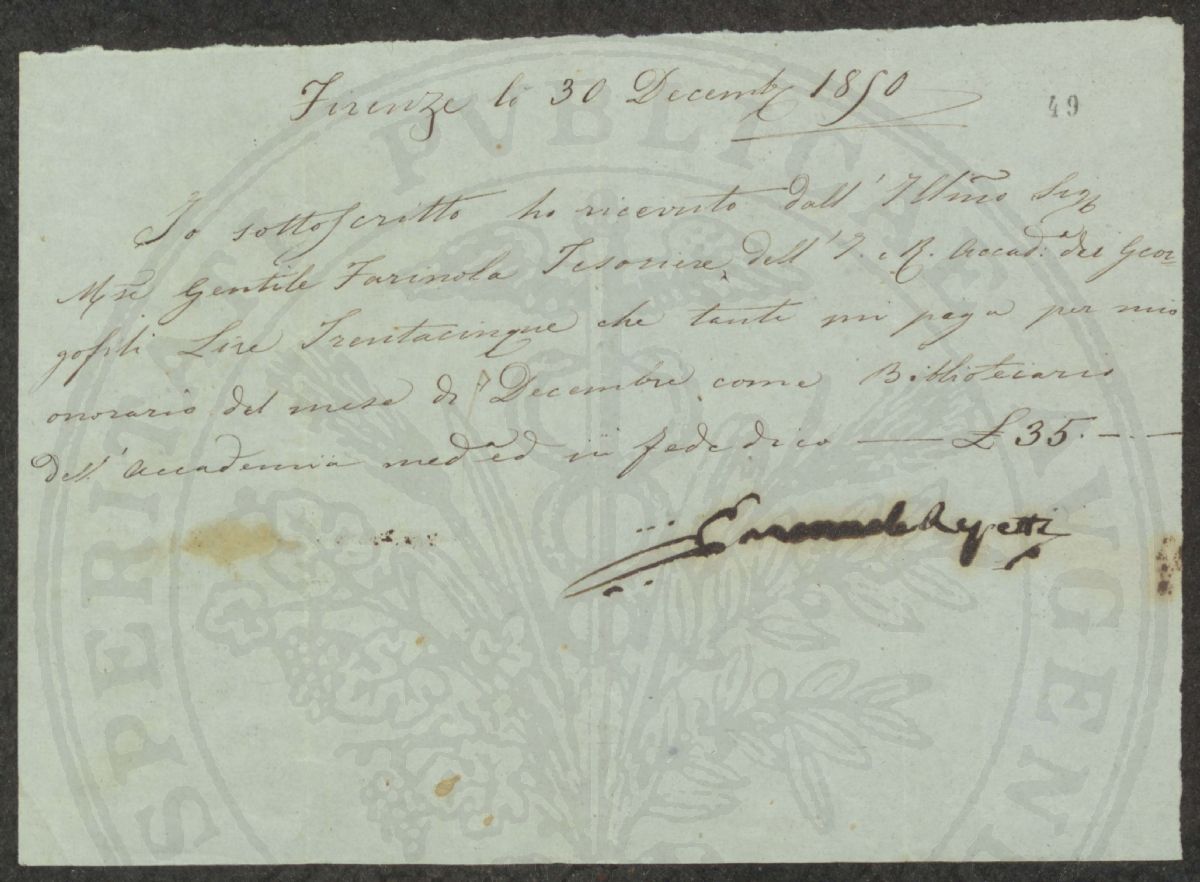 Firenze lì 30 Decemb 1850
49
Io sottoscritto ho ricevuto dall' Illmo Sigr
Mse Gentile Farinola Tesoriere dell' I. e R. Accad.a dei Geor-
gofili Lire Trentacinque che tante mi paga per mio
onorario del mese di Decembre come Bibliotecario
dell' Accademia med ed in fede dico — £ 35. — . —
Emanuele Repetti
PROSPERITATI PVBLICAE AVGENDAE